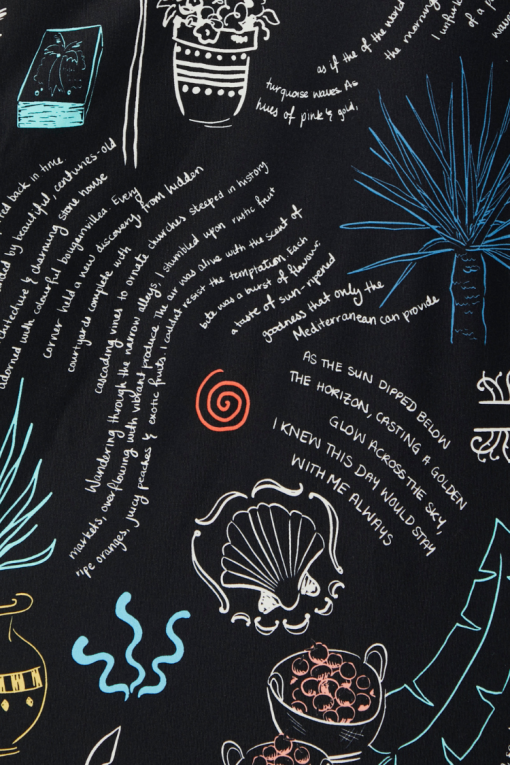 as if the of the world
the morning
I unfur
of a p
turquoise waves As
hues of pink & gold,
red back in time
ed by beautiful centuries-old
chitecture & charming stone house
adorned with colourful bougainvillea Every
corner held a new discovery From hidden
courtyards complete with
cascading vines to ornate churches steeped in history
Wandering through the narrow alleys, I stumbled upon rustic fruit
markets, overflowing with vibrant produce The air was alive with the scent of
ripe oranges, juicy peaches & exotic fruits. I couldnt resist the temptation. Each
bite was a burst of flavour.
a taste of sun-ripened
goodness that only the
Mediterranean can provide
AS THE SUN DIPPED BELOW
THE HORIZON, CASTING A GOLDEN
GLOW ACROSS THE SKY,
I KNEW THIS DAY WOULD STAY
WITH ME ALWAYS